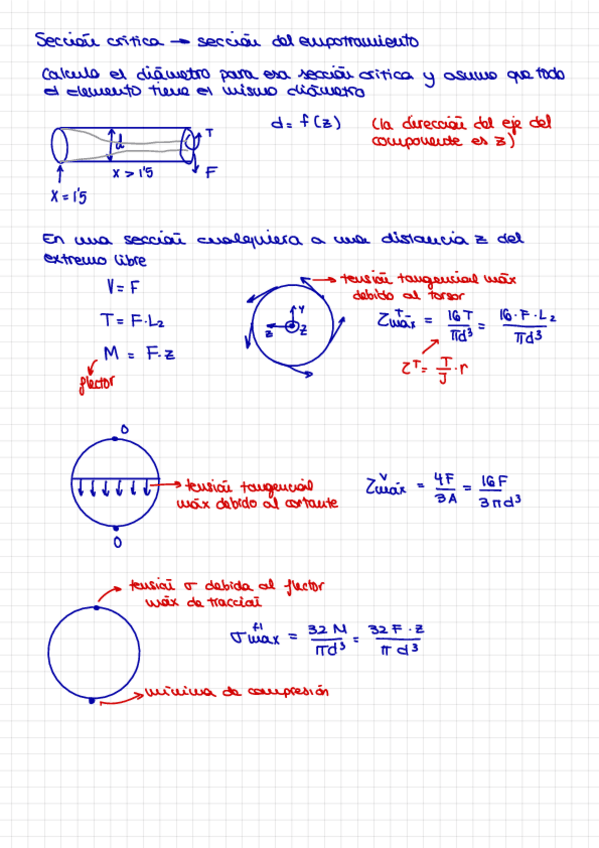 Sección crítica → sección del empotramiento
Calculo el diámetro para esa sección crítica y asumo que todo
el elemento tiene el mismo diámetro
d = f(z) (la dirección del eje del
componente es z)
d
T
x > 1'5
F
x = 1'5
En una sección cualquiera a una distancia z del
extremo libre
V = F
T = F·L₂
M = F·z
flector
y
z
z
tensión tangencial máx
debido al torsor
τ máx^T = 16T/πd³ = 16·F·L₂/πd³
τ^T = T/J · r
0
tensión tangencial
máx debido al cortante
0
τ máx^V = 4F/3A = 16F/3πd³
tensión σ debida al flector
máx de tracción
σ máx^fl = 32M/πd³ = 32F·z/πd³
mínima de compresión